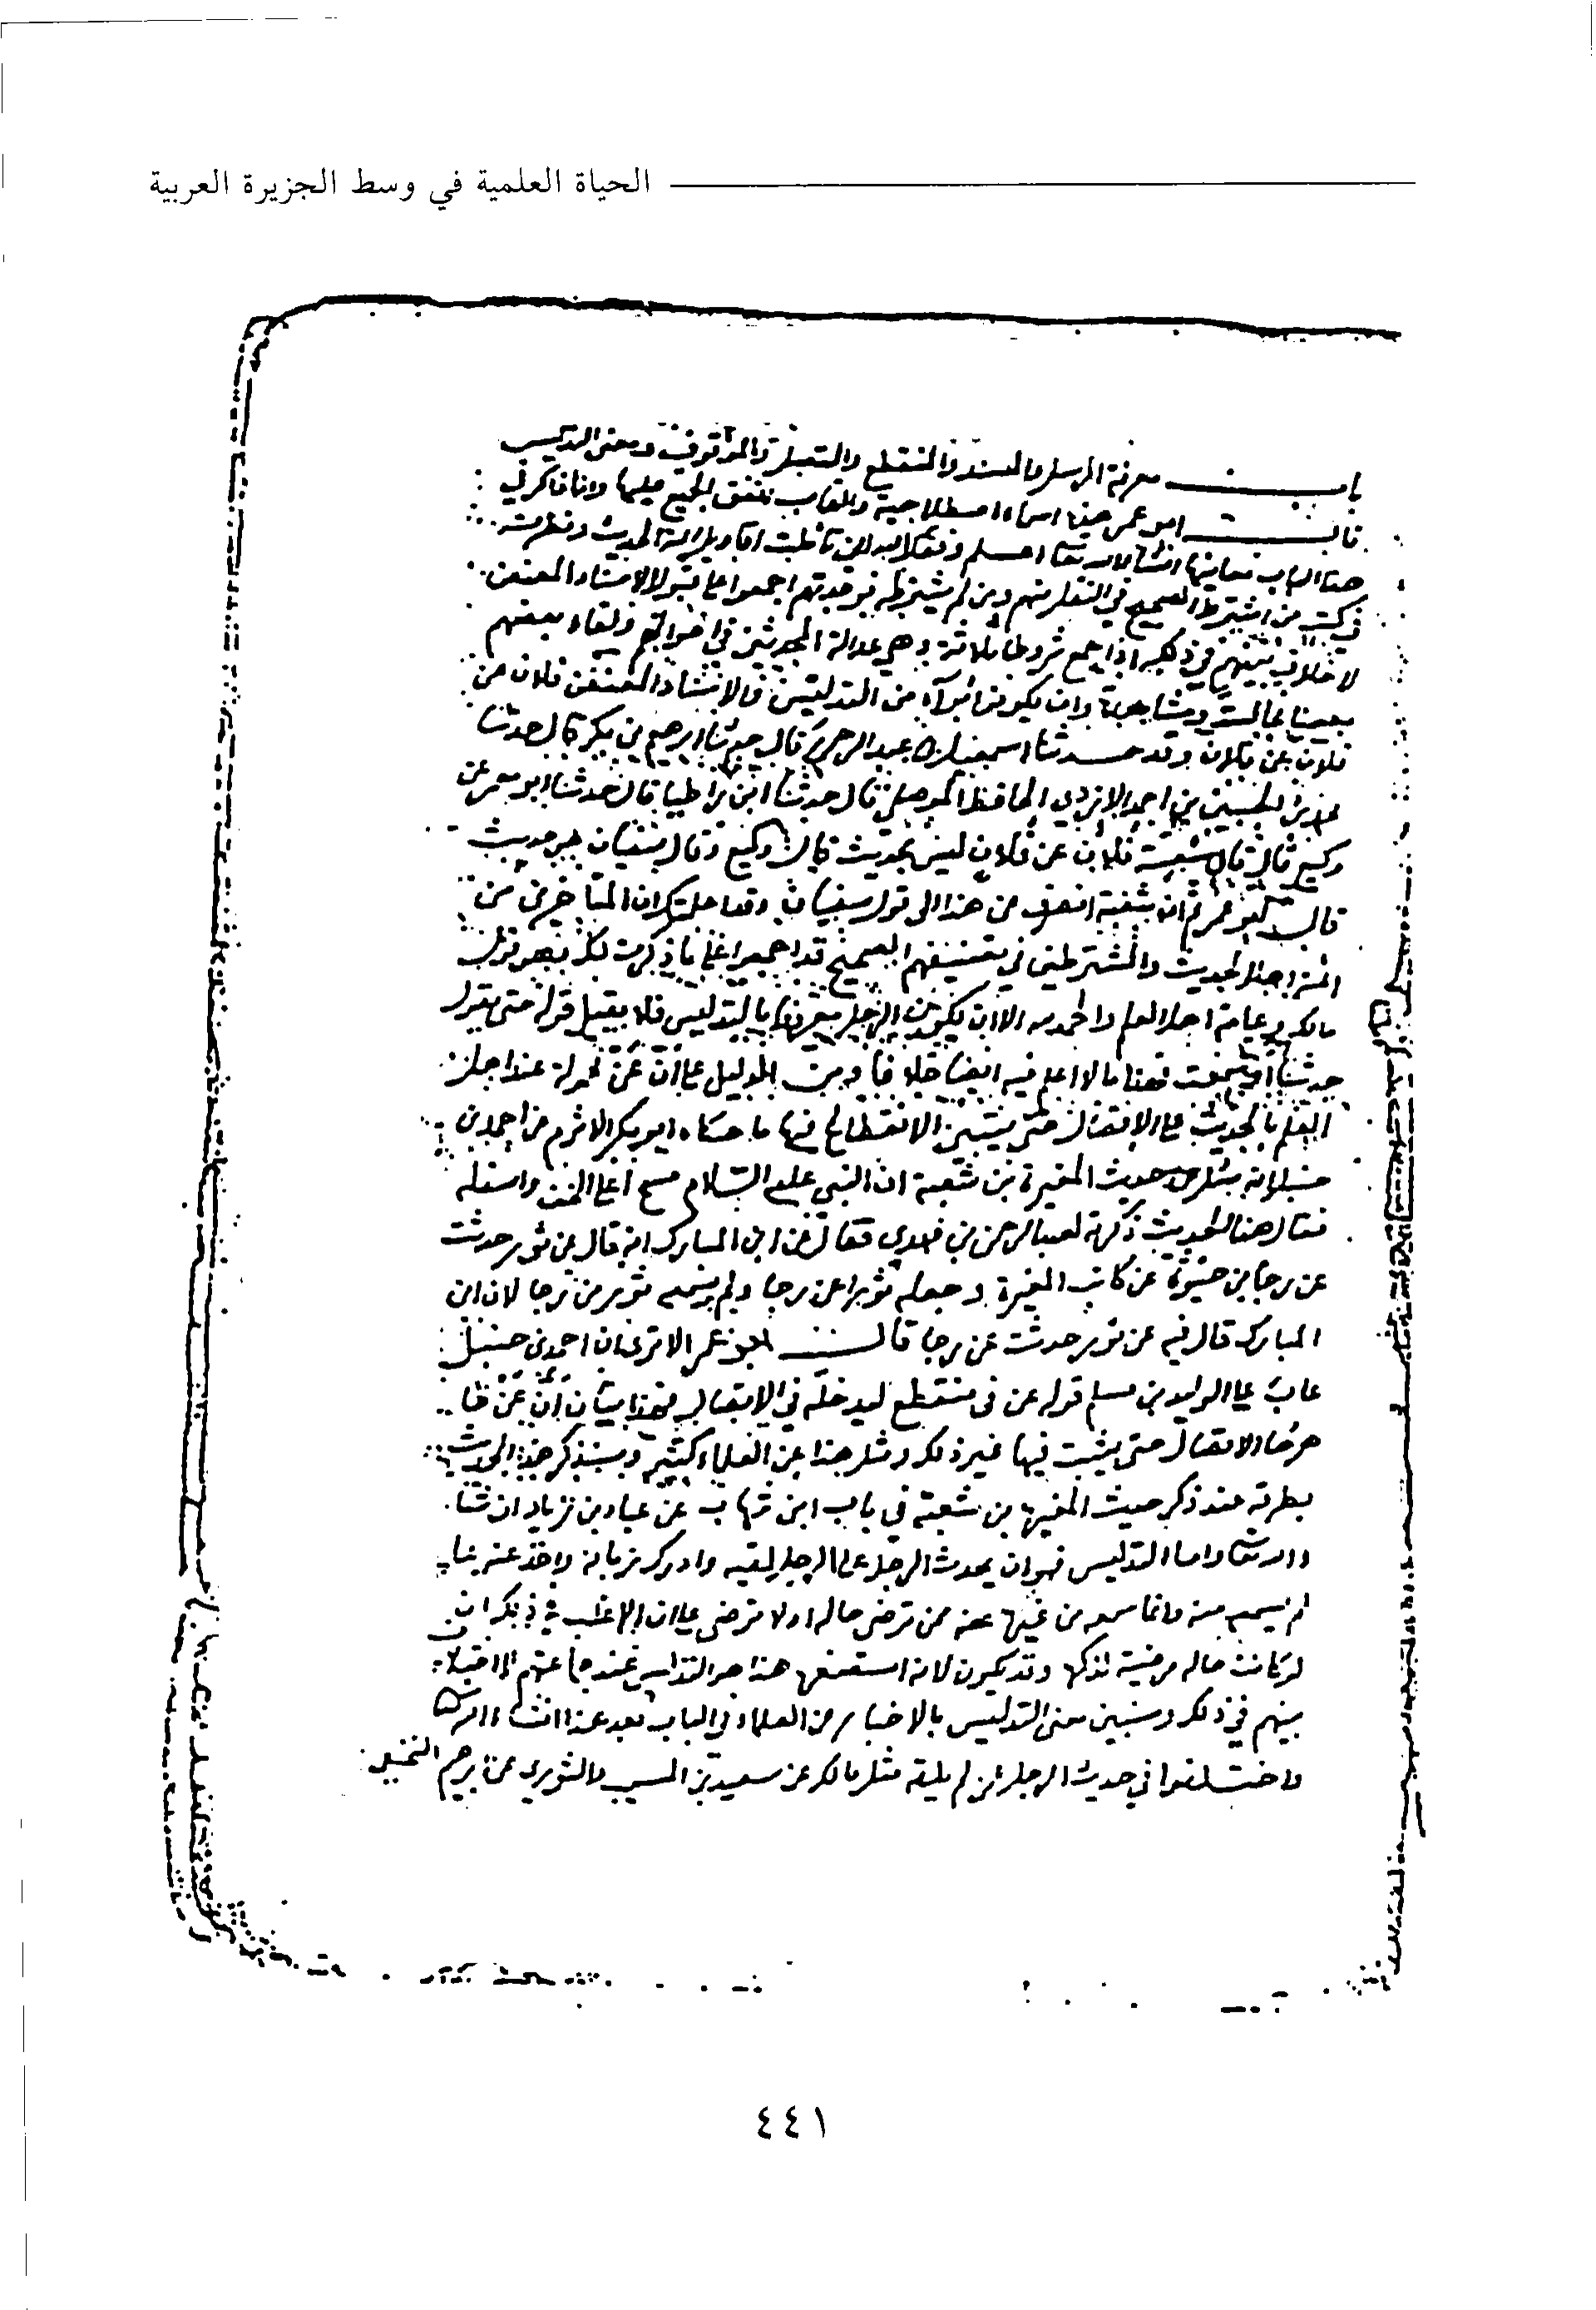 الحياة العلمية في وسط الجزيرة العربية
باب معرفة المرسل والمسند والمنقطع والمتصل والموقوف ومعنى التدليس
قال ابو عمر هذه اسماء اصطلاحية والقاب اتفق الجميع عليها وانا ذاكر في
هذا الباب معانيها ان شاء الله تعالى اعلم وفقك الله اني تاملت اقاويل ائمة الحديث ونظرت
في كتب من اشترط الصحيح في النقل منهم ومن لم يشترطه فوجدتهم اجمعوا على قبول الاسناد المعنعن
لا خلاف بينهم في ذلك اذا جمع شروطا ثلاثة وهي عدالة المحدثين في احوالهم ولقاء بعضهم
بعضا مجالسة ومشاهدة وان يكونوا برآء من التدليس والاسناد المعنعن فلان عن
فلان عن فلان وقد حدثنا اسمعيل بن عبد الرحمن قال حدثنا ابرهيم بن بكر قال حدثنا
محمد بن الحسين بن احمد الازدي الحافظ الموصلي قال حدثنا ابن زاطيا قال حدثنا ابو معمر عن
وكيع قال قال شعبة فلان عن فلان ليس بحديث قال وكيع وقال سفيان هو حديث
قال ابو عمر ثم ان شعبة انصرف عن هذا الى قول سفيان وقد اعلمتك ان المتاخرين من
ائمة اهل الحديث والمشترطين في تصنيفهم الصحيح قد اجمعوا على ما ذكرت لك وهو قول
مالك وعامة اهل العلم والحمد لله الا ان يكون الرجل معروفا بالتدليس فلا يقبل قوله حتى يقول
حدثنا او سمعت فهذا ما لا اعلم فيه ايضا خلافا ومن الدليل على ان عن محمولة عند اهل
العلم بالحديث على الاتصال حتى يتبين الانقطاع فيها ما حكاه ابو بكر الاثرم عن احمد بن
حنبل انه سئل عن حديث المغيرة بن شعبة ان النبي عليه السلام مسح اعلى الخف واسفله
فقال هذا الحديث ذكرته لعبد الرحمن بن مهدي فقال عن ابن المبارك انه قال عن ثور حدثت
عن رجا بن حيوة عن كاتب المغيرة وجعله ثورا عن رجا ولم يسمعه ثور من رجا لان ابن
المبارك قال فيه عن ثور حدثت عن رجا قال ابو عمر الا ترى ان احمد بن حنبل
عاب على الوليد بن مسلم قوله عن في منقطع ليدخله في الاتصال فهذا بيان ان عن ظا
هرها الاتصال حتى يثبت فيها غير ذلك ومثل هذا عن العلماء كثير وسنذكر هذا الحديث
بطرقه عند ذكر حديث المغيرة بن شعبة في باب ابن شهاب عن عباد بن زياد ان شا
الله تعالى واما التدليس فهو ان يحدث الرجل عن الرجل لقيه وادرك زمانه واخذ عنه بما
لم يسمعه منه وانما سمعه من غيره عنه ممن ترضى حاله او لا ترضى على ان الاغلب في ذلك ان
لو كانت حاله مرضية لذكره وقد يكون لانه استصغره هذا هو التدليس عند جماعتهم لا اختلاف
بينهم في ذلك وسنبين معنى التدليس بالاخبار عن العلماء في الباب بعد هذا ان شاء الله
واختلفوا في حديث الرجل عن من لم يلقه مثل مالك عن سعيد بن المسيب والثوري عن ابرهيم النخعي
٤٤١